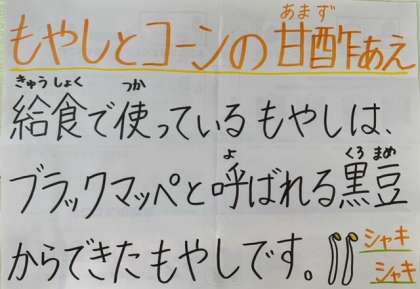 もやしとコーンの甘酢あえ
あまず
きゅうしょく つか
給食で使っているもやしは、
よ くろ まめ
ブラックマッペと呼ばれる黒豆
からできたもやしです。
シャキ
シャキ